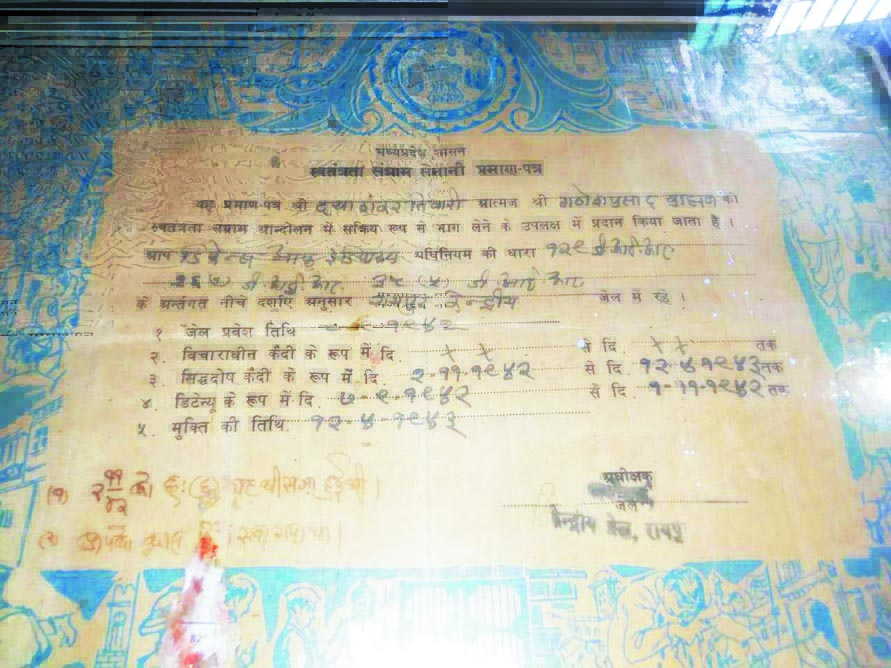 मध्यप्रदेश शासन
स्वतंत्रता संग्राम सेनानी प्रमाण-पत्र
यह प्रमाण-पत्र श्री दयाशंकर तिवारी आत्मज श्री गणेशप्रसाद ब्राह्मण को
स्वतंत्रता संग्राम आन्दोलन में सक्रिय रूप से भाग लेने के उपलक्ष में प्रदान किया जाता है ।
आप डिफेन्स आफ इंडिया अधिनियम की धारा १२९ डी.आई.आर.
डी.आई.आर. ३५ (५) डी.आई.आर
के अन्तर्गत नीचे दर्शाए अनुसार रायपुर केन्द्रीय जेल में रहे ।
१. जेल प्रवेश तिथि ९-१९४२
२. विचाराधीन कैदी के रूप में दि. x x से दि. x x तक
३. सिद्धदोष कैदी के रूप में दि. २-११-१९४२ से दि. १२-५-१९४३ तक
४. डिटेन्यू के रूप में दि. ७-९-१९४२ से दि. १-११-१९४२ तक
५. मुक्ति की तिथि १२-५-१९४३
(१) को छः (६) की सजा हुई थी ।
(२)
अधीक्षक
जेल
केन्द्रीय जेल, रायपुर